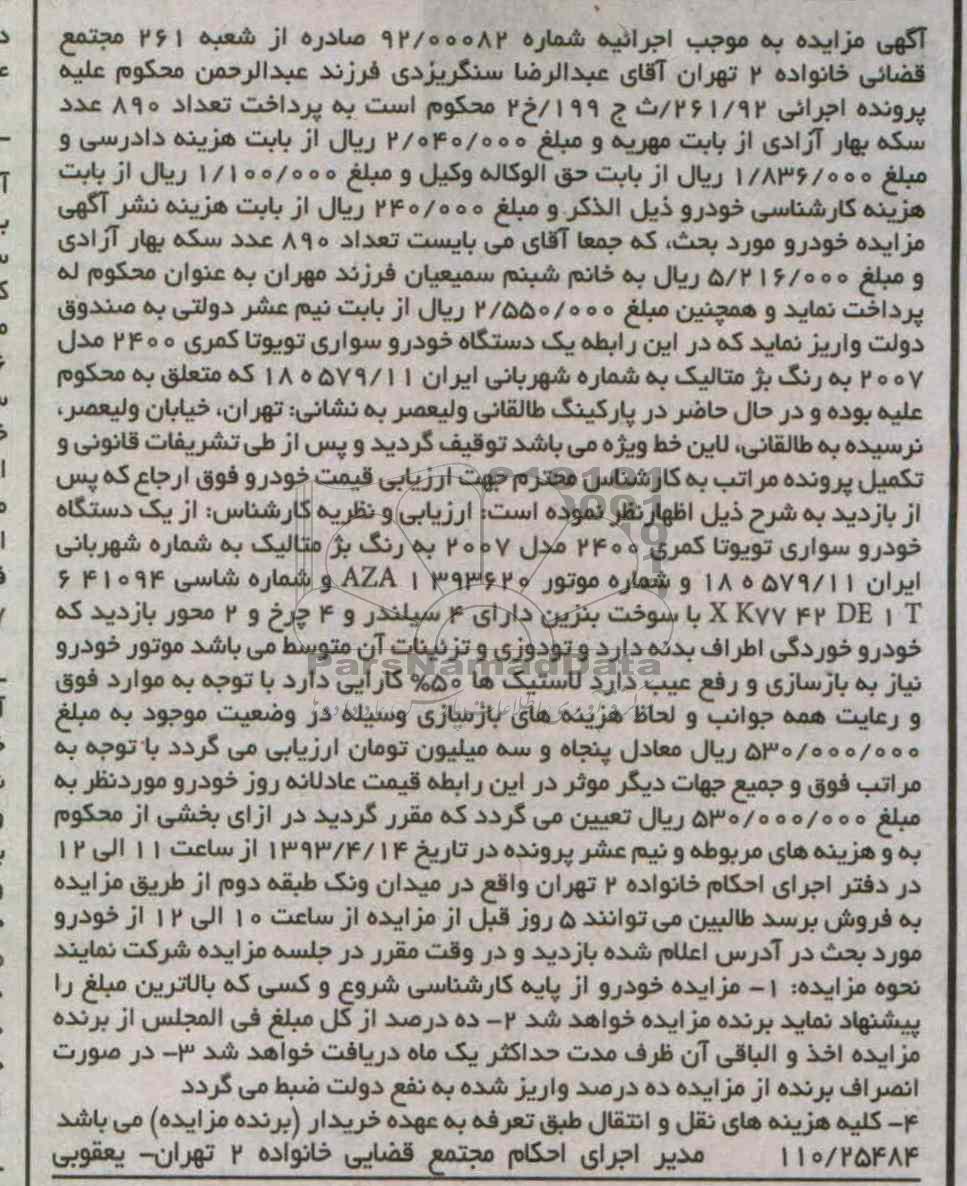 آگهی مزایده به موجب اجرائیه شماره ۹۲/۰۰۰۸۲ صادره از شعبه ۲۶۱ مجتمع
قضائی خانواده ۲ تهران آقای عبدالرضا سنگریزدی فرزند عبدالرحمن محکوم علیه
پرونده اجرائی ۲۶۱/۹۲/ث ج ۱۹۹/خ۲ محکوم است به پرداخت تعداد ۸۹۰ عدد
سکه بهار آزادی از بابت مهریه و مبلغ ۲/۰۴۰/۰۰۰ ریال از بابت هزینه دادرسی و
مبلغ ۱/۸۳۶/۰۰۰ ریال از بابت حق الوکاله وکیل و مبلغ ۱/۱۰۰/۰۰۰ ریال از بابت
هزینه کارشناسی خودرو ذیل الذکر و مبلغ ۲۴۰/۰۰۰ ریال از بابت هزینه نشر آگهی
مزایده خودرو مورد بحث، که جمعا آقای می بایست تعداد ۸۹۰ عدد سکه بهار آزادی
و مبلغ ۵/۲۱۶/۰۰۰ ریال به خانم شبنم سمیعیان فرزند مهران به عنوان محکوم له
پرداخت نماید و همچنین مبلغ ۲/۵۵۰/۰۰۰ ریال از بابت نیم عشر دولتی به صندوق
دولت واریز نماید که در این رابطه یک دستگاه خودرو سواری تویوتا کمری ۲۴۰۰ مدل
۲۰۰۷ به رنگ بژ متالیک به شماره شهربانی ایران ۵۷۹/۱۱ ه ۱۸ که متعلق به محکوم
علیه بوده و در حال حاضر در پارکینگ طالقانی ولیعصر به نشانی: تهران، خیابان ولیعصر،
نرسیده به طالقانی، لاین خط ویژه می باشد توقیف گردید و پس از طی تشریفات قانونی و
تکمیل پرونده مراتب به کارشناس محترم جهت ارزیابی قیمت خودرو فوق ارجاع که پس
از بازدید به شرح ذیل اظهارنظر نموده است: ارزیابی و نظریه کارشناس: از یک دستگاه
خودرو سواری تویوتا کمری ۲۴۰۰ مدل ۲۰۰۷ به رنگ بژ متالیک به شماره شهربانی
ایران ۵۷۹/۱۱ ه ۱۸ و شماره موتور ۱۳۹۳۶۲۰ AZA ۱ و شماره شاسی ۴۱۰۹۴ ۶
X K۷۷ ۴۲ DE ۱ T با سوخت بنزین دارای ۴ سیلندر و ۴ چرخ و ۲ محور بازدید که
خودرو خوردگی اطراف بدنه دارد و تودوزی و تزئینات آن متوسط می باشد موتور خودرو
ParsNamadData
نیاز به بازسازی و رفع عیب دارد لاستیک ها ۵۰% کارایی دارد با توجه به موارد فوق
و رعایت همه جوانب و لحاظ هزینه های بازسازی وسیله در وضعیت موجود به مبلغ
۵۳۰/۰۰۰/۰۰۰ ریال معادل پنجاه و سه میلیون تومان ارزیابی می گردد با توجه به
مراتب فوق و جمیع جهات دیگر موثر در این رابطه قیمت عادلانه روز خودرو موردنظر به
مبلغ ۵۳۰/۰۰۰/۰۰۰ ریال تعیین می گردد که مقرر گردید در ازای بخشی از محکوم
به و هزینه های مربوطه و نیم عشر پرونده در تاریخ ۱۳۹۳/۴/۱۴ از ساعت ۱۱ الی ۱۲
در دفتر اجرای احکام خانواده ۲ تهران واقع در میدان ونک طبقه دوم از طریق مزایده
به فروش برسد طالبین می توانند ۵ روز قبل از مزایده از ساعت ۱۰ الی ۱۲ از خودرو
مورد بحث در آدرس اعلام شده بازدید و در وقت مقرر در جلسه مزایده شرکت نمایند
نحوه مزایده: ۱- مزایده خودرو از پایه کارشناسی شروع و کسی که بالاترین مبلغ را
پیشنهاد نماید برنده مزایده خواهد شد ۲- ده درصد از کل مبلغ فی المجلس از برنده
مزایده اخذ و الباقی آن ظرف مدت حداکثر یک ماه دریافت خواهد شد ۳- در صورت
انصراف برنده از مزایده ده درصد واریز شده به نفع دولت ضبط می گردد
۴- کلیه هزینه های نقل و انتقال طبق تعرفه به عهده خریدار (برنده مزایده) می باشد
۱۱۰/۲۵۴۸۴ مدیر اجرای احکام مجتمع قضایی خانواده ۲ تهران- یعقوبی